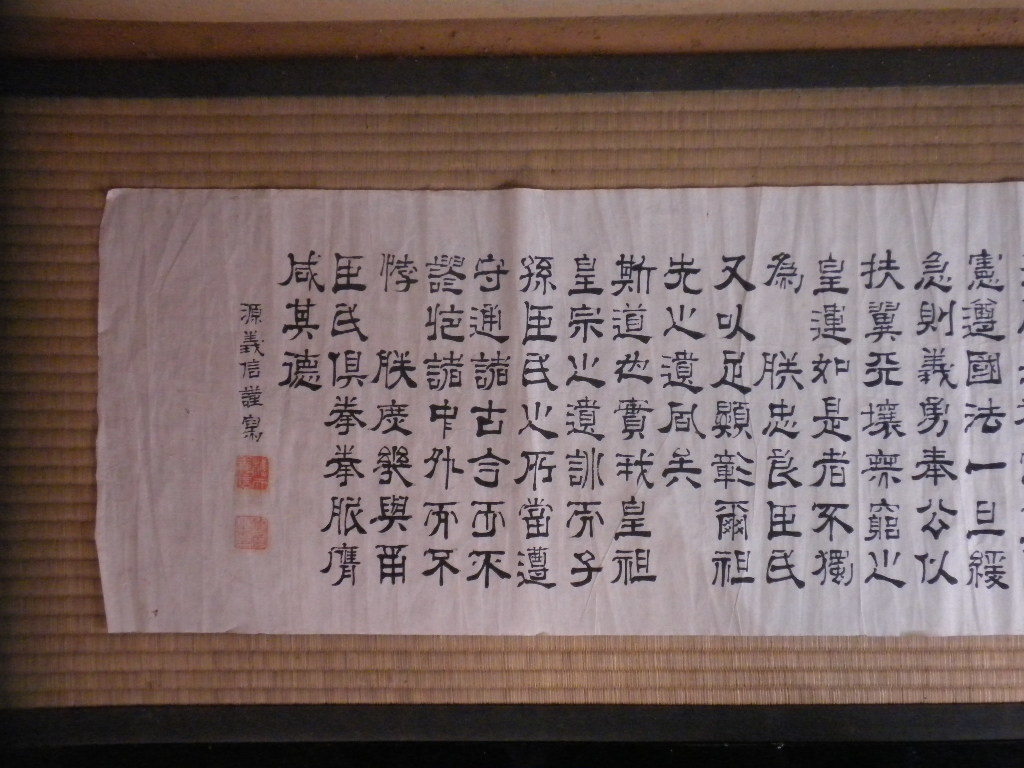 憲遵國法一旦緩
急則義勇奉公以
扶翼天壤無窮之
皇運如是者不獨
為　朕忠良臣民
又以足顯彰爾祖
先之遺風矣
斯道也實我皇祖
皇宗之遺訓而子
孫臣民之所當遵
守通諸古今而不
謬施諸中外而不
悖　朕庶幾與爾
臣民俱拳拳服膺
咸其德
源義信謹寫